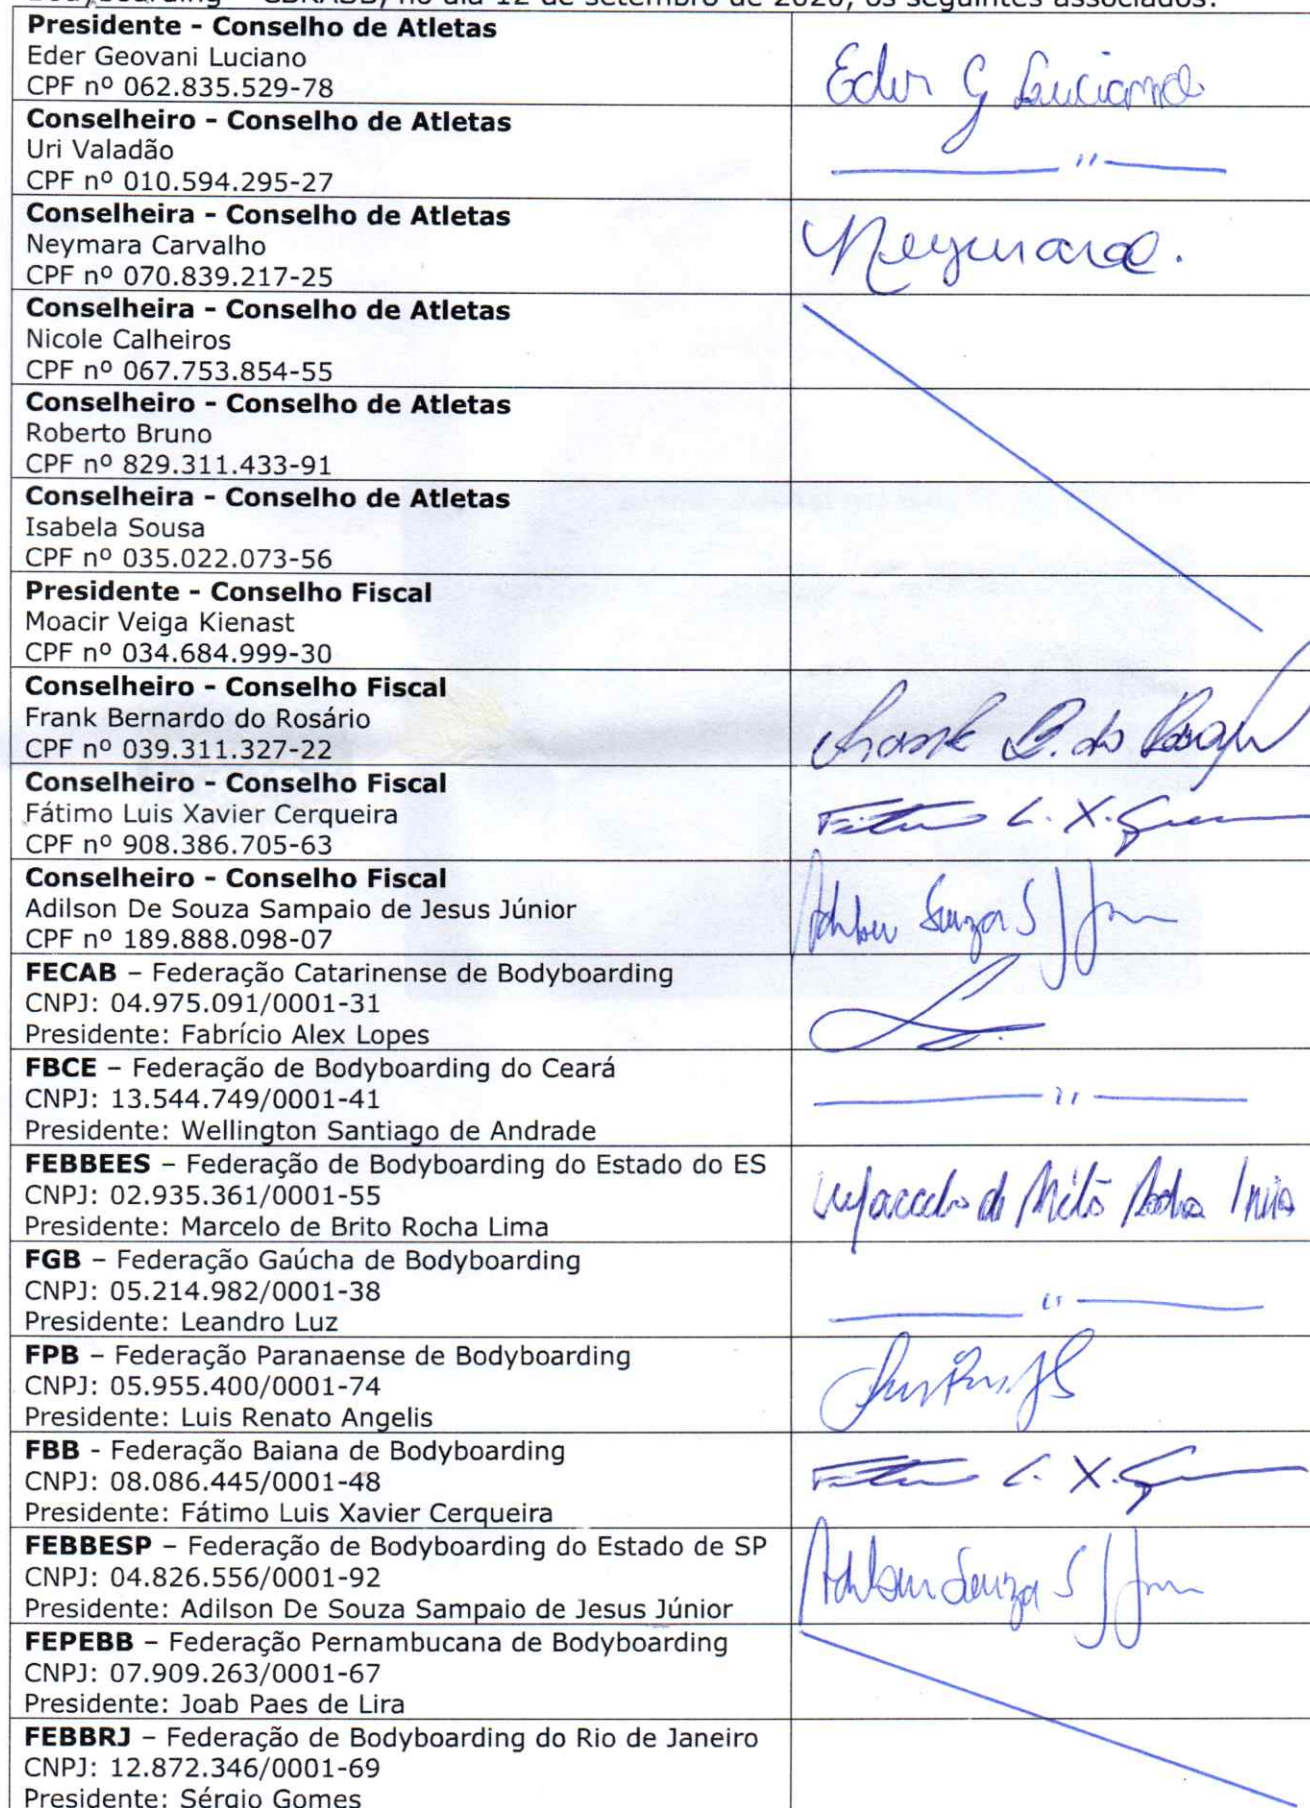 Bodyboarding - CBRASB, no dia 12 de setembro de 2020, os seguintes associados:
Presidente - Conselho de Atletas
Eder Geovani Luciano
CPF nº 062.835.529-78
Eder G Luciano
Conselheiro - Conselho de Atletas
Uri Valadão
CPF nº 010.594.295-27
"
Conselheira - Conselho de Atletas
Neymara Carvalho
CPF nº 070.839.217-25
Neymara.
Conselheira - Conselho de Atletas
Nicole Calheiros
CPF nº 067.753.854-55
Conselheiro - Conselho de Atletas
Roberto Bruno
CPF nº 829.311.433-91
Conselheira - Conselho de Atletas
Isabela Sousa
CPF nº 035.022.073-56
Presidente - Conselho Fiscal
Moacir Veiga Kienast
CPF nº 034.684.999-30
Conselheiro - Conselho Fiscal
Frank Bernardo do Rosário
CPF nº 039.311.327-22
Frank B. do Rosário
Conselheiro - Conselho Fiscal
Fátimo Luis Xavier Cerqueira
CPF nº 908.386.705-63
L. X.
Conselheiro - Conselho Fiscal
Adilson De Souza Sampaio de Jesus Júnior
CPF nº 189.888.098-07
Adilson Souza S J
FECAB – Federação Catarinense de Bodyboarding
CNPJ: 04.975.091/0001-31
Presidente: Fabrício Alex Lopes
FBCE – Federação de Bodyboarding do Ceará
CNPJ: 13.544.749/0001-41
Presidente: Wellington Santiago de Andrade
"
FEBBEES – Federação de Bodyboarding do Estado do ES
CNPJ: 02.935.361/0001-55
Presidente: Marcelo de Brito Rocha Lima
Marcelo de Brito Rocha Lima
FGB – Federação Gaúcha de Bodyboarding
CNPJ: 05.214.982/0001-38
Presidente: Leandro Luz
"
FPB – Federação Paranaense de Bodyboarding
CNPJ: 05.955.400/0001-74
Presidente: Luis Renato Angelis
FBB - Federação Baiana de Bodyboarding
CNPJ: 08.086.445/0001-48
Presidente: Fátimo Luis Xavier Cerqueira
L. X.
FEBBESP – Federação de Bodyboarding do Estado de SP
CNPJ: 04.826.556/0001-92
Presidente: Adilson De Souza Sampaio de Jesus Júnior
Adilson Souza S J
FEPEBB – Federação Pernambucana de Bodyboarding
CNPJ: 07.909.263/0001-67
Presidente: Joab Paes de Lira
FEBBRJ – Federação de Bodyboarding do Rio de Janeiro
CNPJ: 12.872.346/0001-69
Presidente: Sérgio Gomes